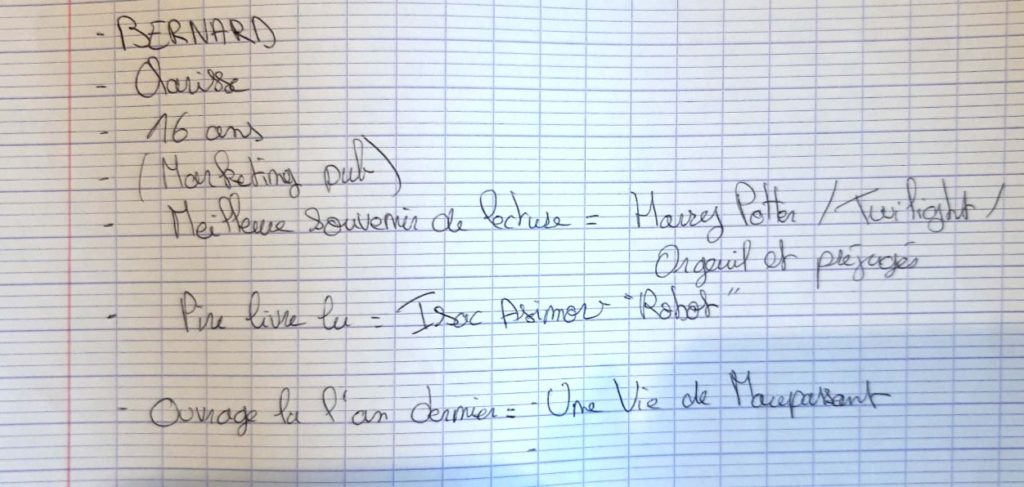 - BERNARD
- Clarisse
- 16 ans
- (Marketing pub)
- Meilleure souvenir de lecture = Harrey Potter / Twilight /
Orgeuil et préjugés
- Pire livre lu = Isac Asimov "Robot"
- Ouvrage lu l'an dernier = - Une Vie de Maupassant
-